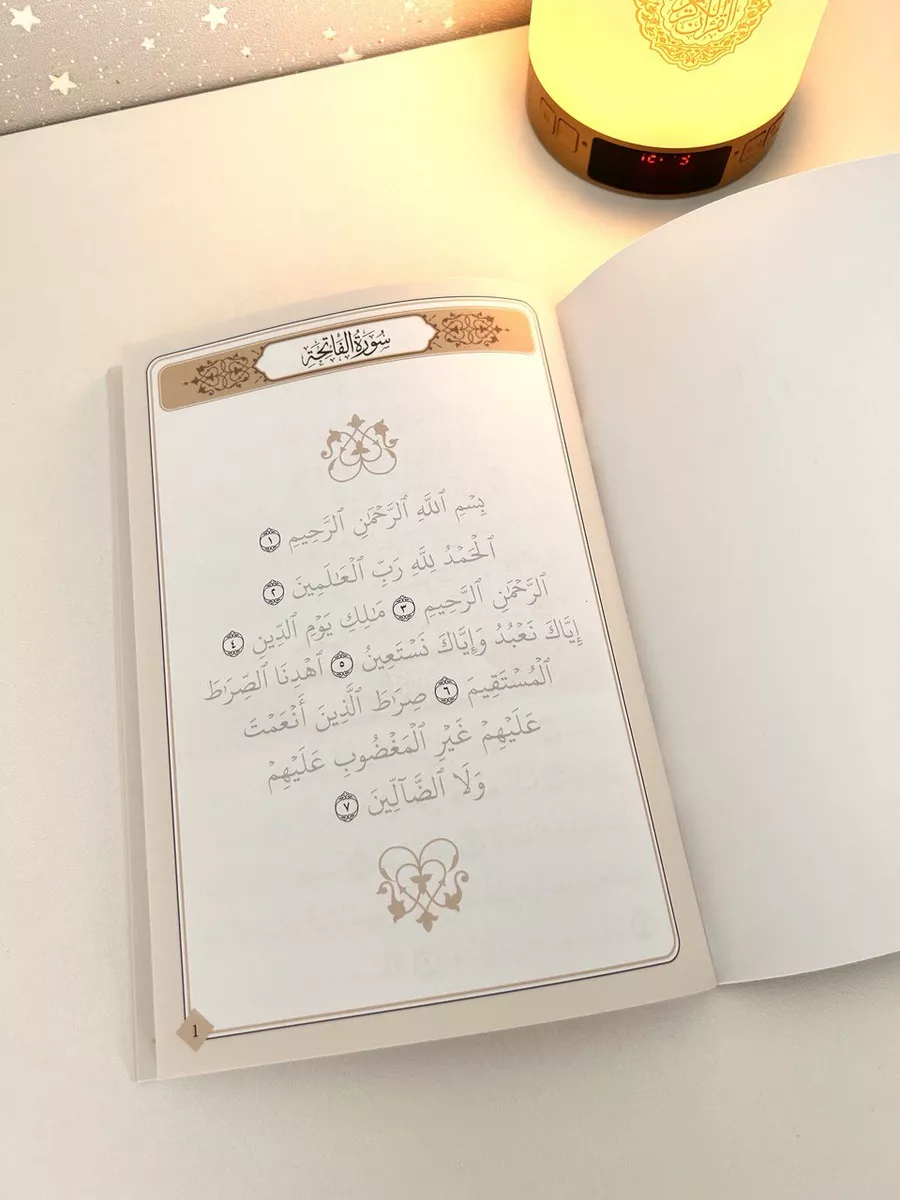 القرآن الكريم
سُورَةُ الفَاتِحَةِ
بِسۡمِ ٱللَّهِ ٱلرَّحۡمَٰنِ ٱلرَّحِيمِ ١
ٱلۡحَمۡدُ لِلَّهِ رَبِّ ٱلۡعَٰلَمِينَ ٢
ٱلرَّحۡمَٰنِ ٱلرَّحِيمِ ٣ مَٰلِكِ يَوۡمِ ٱلدِّينِ ٤
إِيَّاكَ نَعۡبُدُ وَإِيَّاكَ نَسۡتَعِينُ ٥ ٱهۡدِنَا ٱلصِّرَٰطَ
ٱلۡمُسۡتَقِيمَ ٦ صِرَٰطَ ٱلَّذِينَ أَنۡعَمۡتَ
عَلَيۡهِمۡ غَيۡرِ ٱلۡمَغۡضُوبِ عَلَيۡهِمۡ
وَلَا ٱلضَّآلِّينَ ٧
1